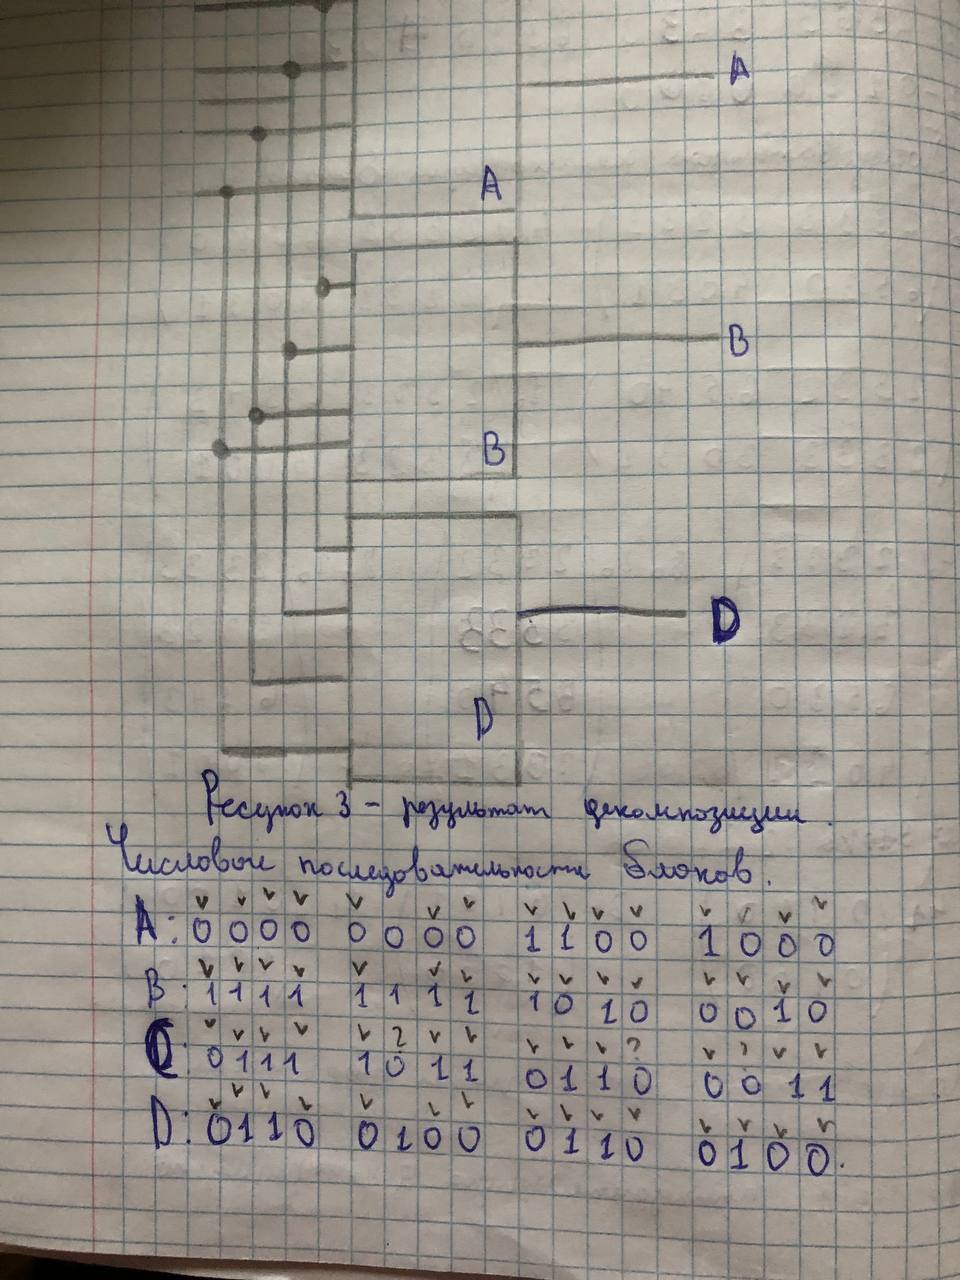 A
A
B
B
D
D
Рисунок 3 – результат декомпозиции.
Числовые последовательности блоков:
A: 0000 0000 1100 1000
B: 1111 1111 1010 0010
C: 0111 1011 0110 0011
D: 0110 0100 0110 0100.